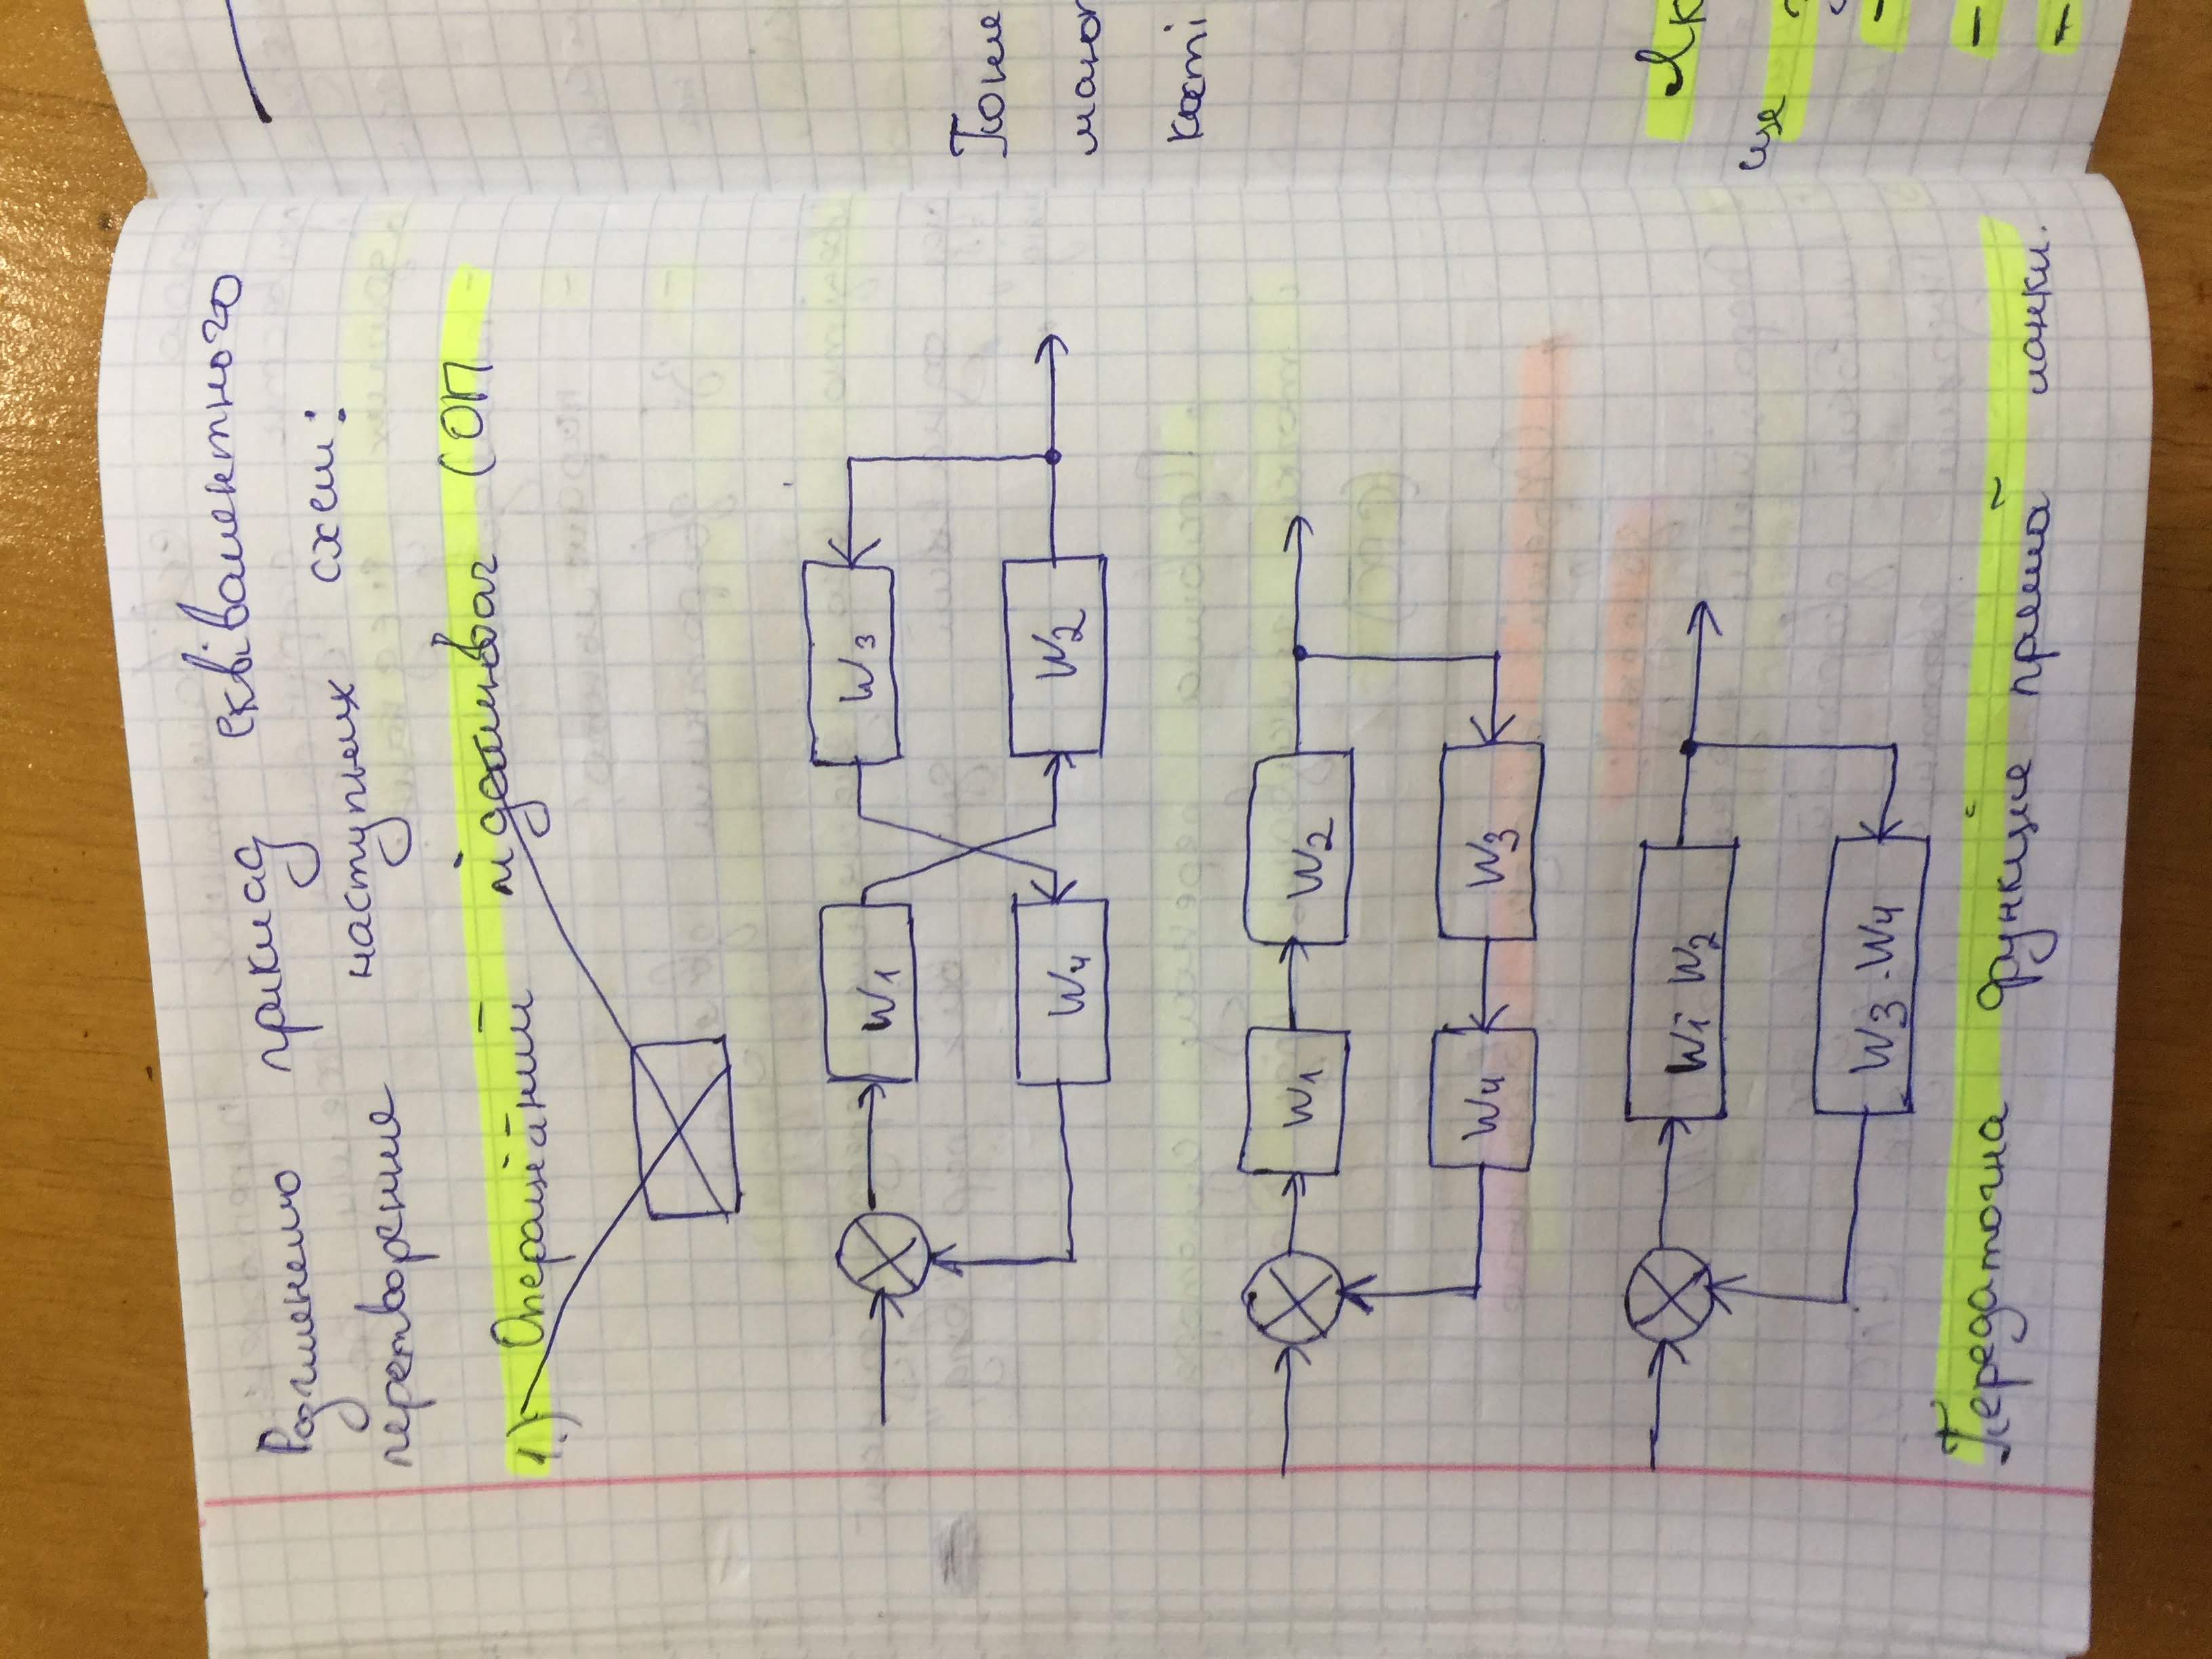 Розглянемо приклад еквівалентного
перетворення наступних схем:
1.) Операційний підсилювач (ОП
W1
W3
W4
W2
W1
W2
W4
W3
W1 W2
W3 · W4
Передаточна функція прямої ланки.
кості
Як
ще